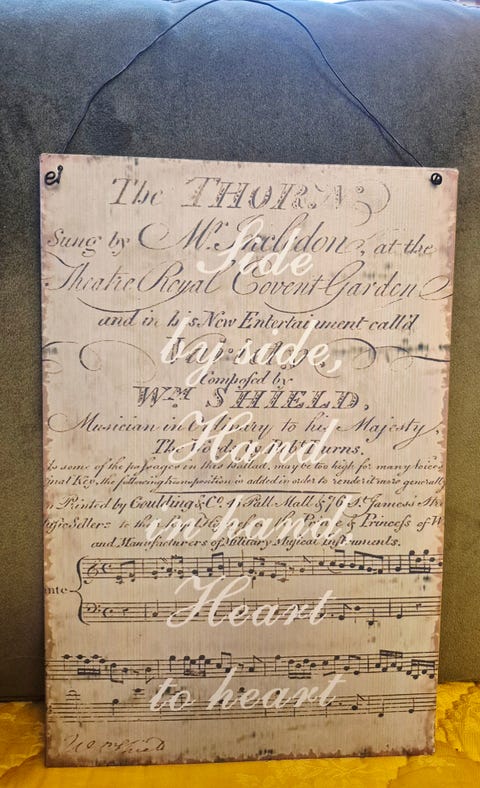 The THORN,
Sung by Mr. Incledon, at the
Side
Theatre Royal Covent Garden
and in his New Entertainment call'd
by side,
Composed by
WM. SHIELD,
Musician in Ordinary to his Majesty,
Hand
The Words by Robt. Burns.
As some of the passages in this Ballad, may be too high for many Voices
inal Key, the following transposition is added in order to render it more generally
n Printed by Goulding & Co. 45 Pall Mall & 76 St. James's Stre
in hand
usic Sellers to the Prince & Princess of W
and Manufacturers of Military Musical Instruments.
nte
Heart
to heart
Wm Shield